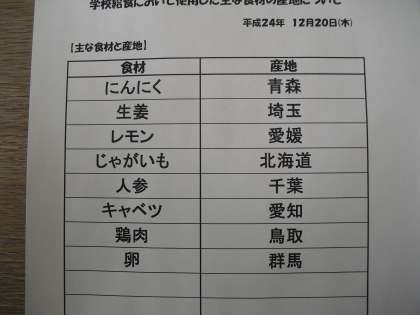 学校給食において使用した主な食材の産地について
平成24年 12月20日(木)
【主な食材と産地】
食材 産地
にんにく 青森
生姜 埼玉
レモン 愛媛
じゃがいも 北海道
人参 千葉
キャベツ 愛知
鶏肉 鳥取
卵 群馬